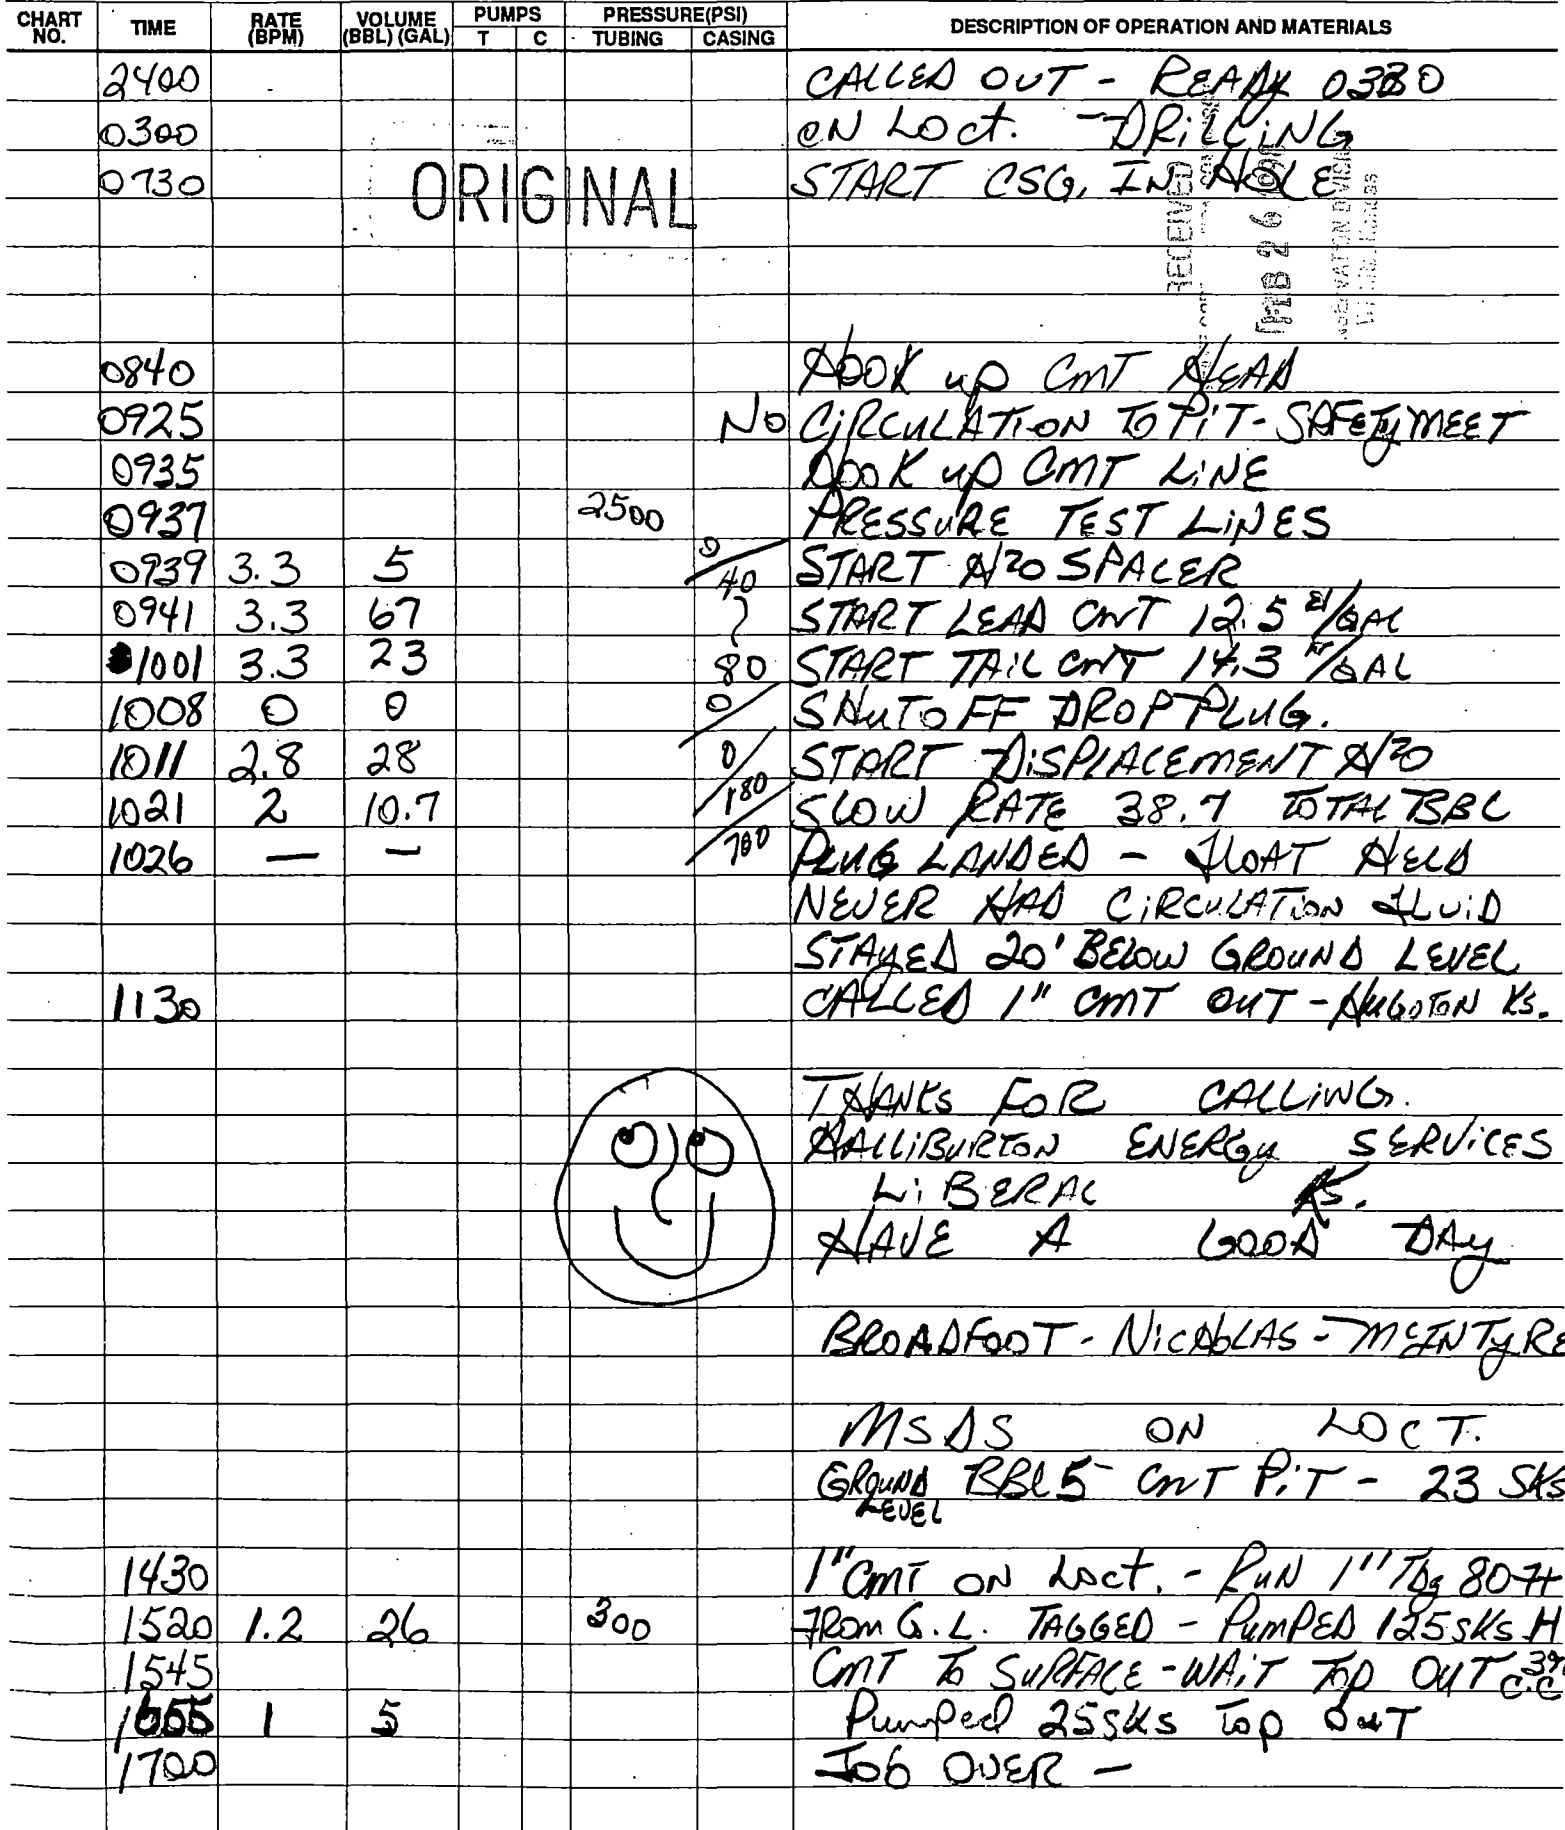 CHART NO. TIME RATE (BPM) VOLUME (BBL) (GAL) PUMPS T C PRESSURE(PSI) TUBING CASING DESCRIPTION OF OPERATION AND MATERIALS
2400 CALLED OUT - READY 0330
0300 ON LOCT. - DRILLING
0730 START CSG. IN HOLE
ORIGINAL
RECEIVED
FEB 26
0840 HOOK UP CMT HEAD
0925 NO CIRCULATION TO PIT - SAFETY MEET
0935 HOOK UP CMT LINE
0937 2500 PRESSURE TEST LINES
0939 3.3 5 0/40 START H2O SPACER
0941 3.3 67 START LEAD CMT 12.5 #/GAL
1001 3.3 23 80 START TAIL CMT 14.3 #/GAL
1008 0 0 0/ SHUT OFF DROP PLUG.
1011 2.8 28 0/180 START DISPLACEMENT H2O
1021 2 10.7 SLOW RATE 38.7 TOTAL BBL
1026 — — /700 PLUG LANDED - FLOAT HELD
NEVER HAD CIRCULATION FLUID
STAYED 20' BELOW GROUND LEVEL
1130 CALLED 1" CMT OUT - HUGOTON KS.
THANKS FOR CALLING.
HALLIBURTON ENERGY SERVICES
LIBERAL KS.
HAVE A GOOD DAY
BROADFOOT - NICHOLAS - MCINTYRE
MSDS ON LOCT.
GROUND LEVEL BBL 5 CMT PIT - 23 SKS
1430 1" CMT ON LOCT. - RUN 1" Tbg 80 FT
1520 1.2 26 300 FROM G.L. TAGGED - PUMPED 125 SKS H
1545 CMT TO SURFACE - WAIT TOP OUT 3% C.C
1655 1 5 Pumped 25 SKS TOP OUT
1700 JOB OVER —